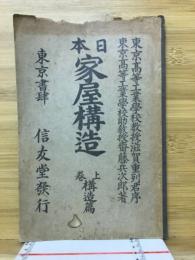 東京高等工業學校教授滋賀重列君序
東京高等工業學校助教授齋藤兵次郎著
日本家屋構造
上卷 構造篇
東京書肆 信友堂發行